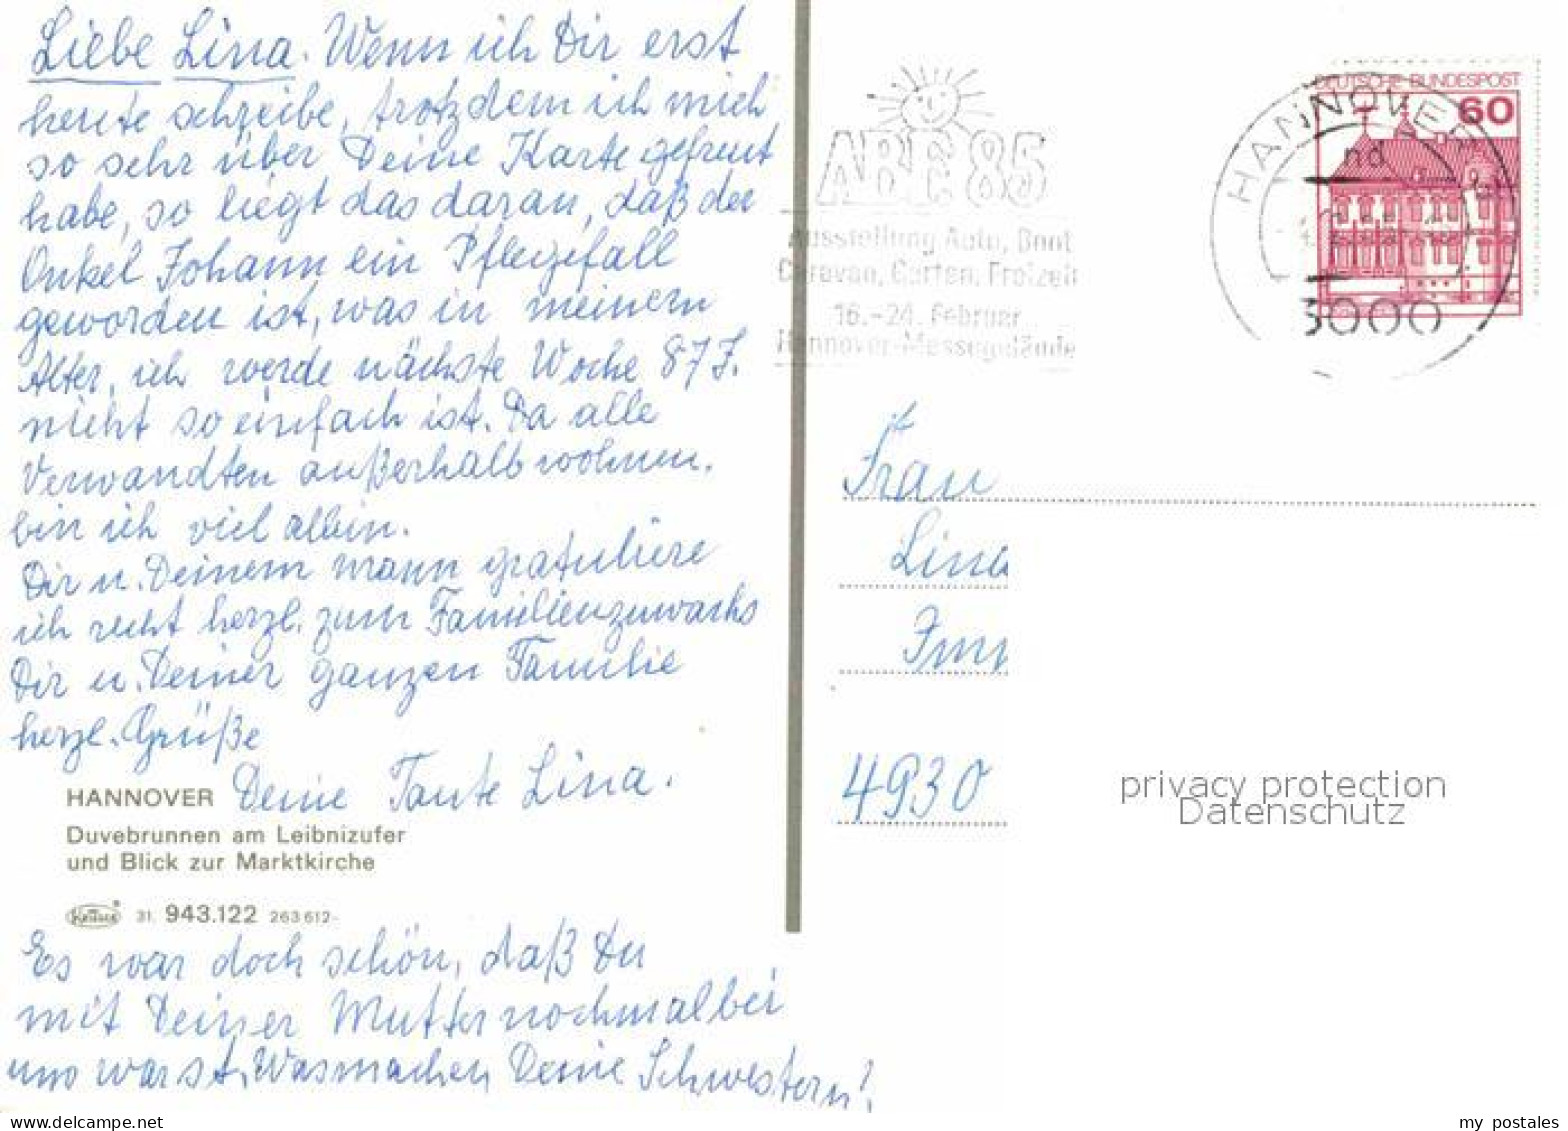 Liebe Lina. Wenn ich Dir erst
heute schreibe, trotzdem ich mich
so sehr über Deine Karte gefreut
habe, so liegt das daran, daß der
Onkel Johann ein Pflegefall
geworden ist, was in meinem
Alter, ich werde nächste Woche 87 J.
nicht so einfach ist. Da alle
Verwandten außerhalb wohnen.
bin ich viel allein.
Dir u. Deinem Mann gratuliere
ich recht herzl. zum Familienzuwachs
Dir u. Deiner ganzen Familie
herzl. Grüße
Deine Tante Lina.
HANNOVER
Duvebrunnen am Leibnizufer
und Blick zur Marktkirche
Krüger 31. 943.122 263 612-
Es war doch schön, daß Du
mit Deiner Mutter nochmal bei
uns warst. Was machen Deine Schwestern?
ABF 85
Ausstellung Auto, Boot
Caravan, Garten, Freizeit
16.-24. Februar
Hannover-Messegelände
DEUTSCHE BUNDESPOST
60
HANNOVER
3000
Frau
Lina
4930
privacy protection
Datenschutz
my postales